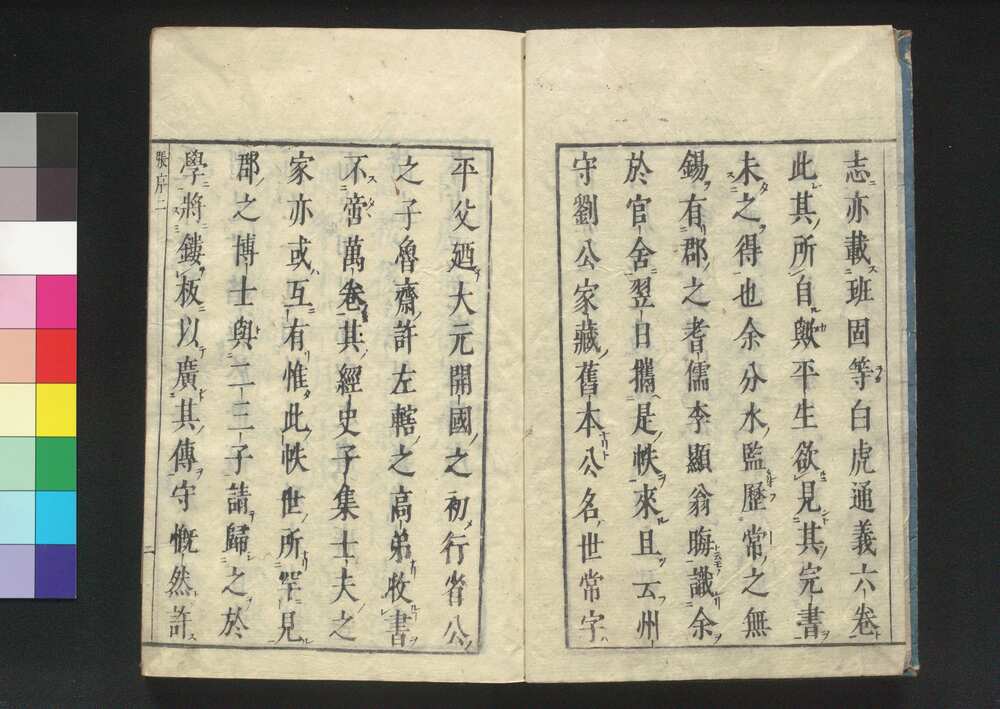 志亦載班固等白虎通義六卷
此其所自歟平生欲見其完書
未之得也余分水監歷常之無
錫有郡之耆儒李顯翁晦識余
於官舍翌日攜是帙來且云州
守劉公家藏舊本公名世常字
平父廼大元開國之初行省公
之子魯齋許左轄之高弟收書
不啻萬卷其經史子集士夫之
家亦或互有惟此帙世所罕見
郡之博士與二三子請歸之於
學將鏤板以廣其傳守慨然許
張序二
二